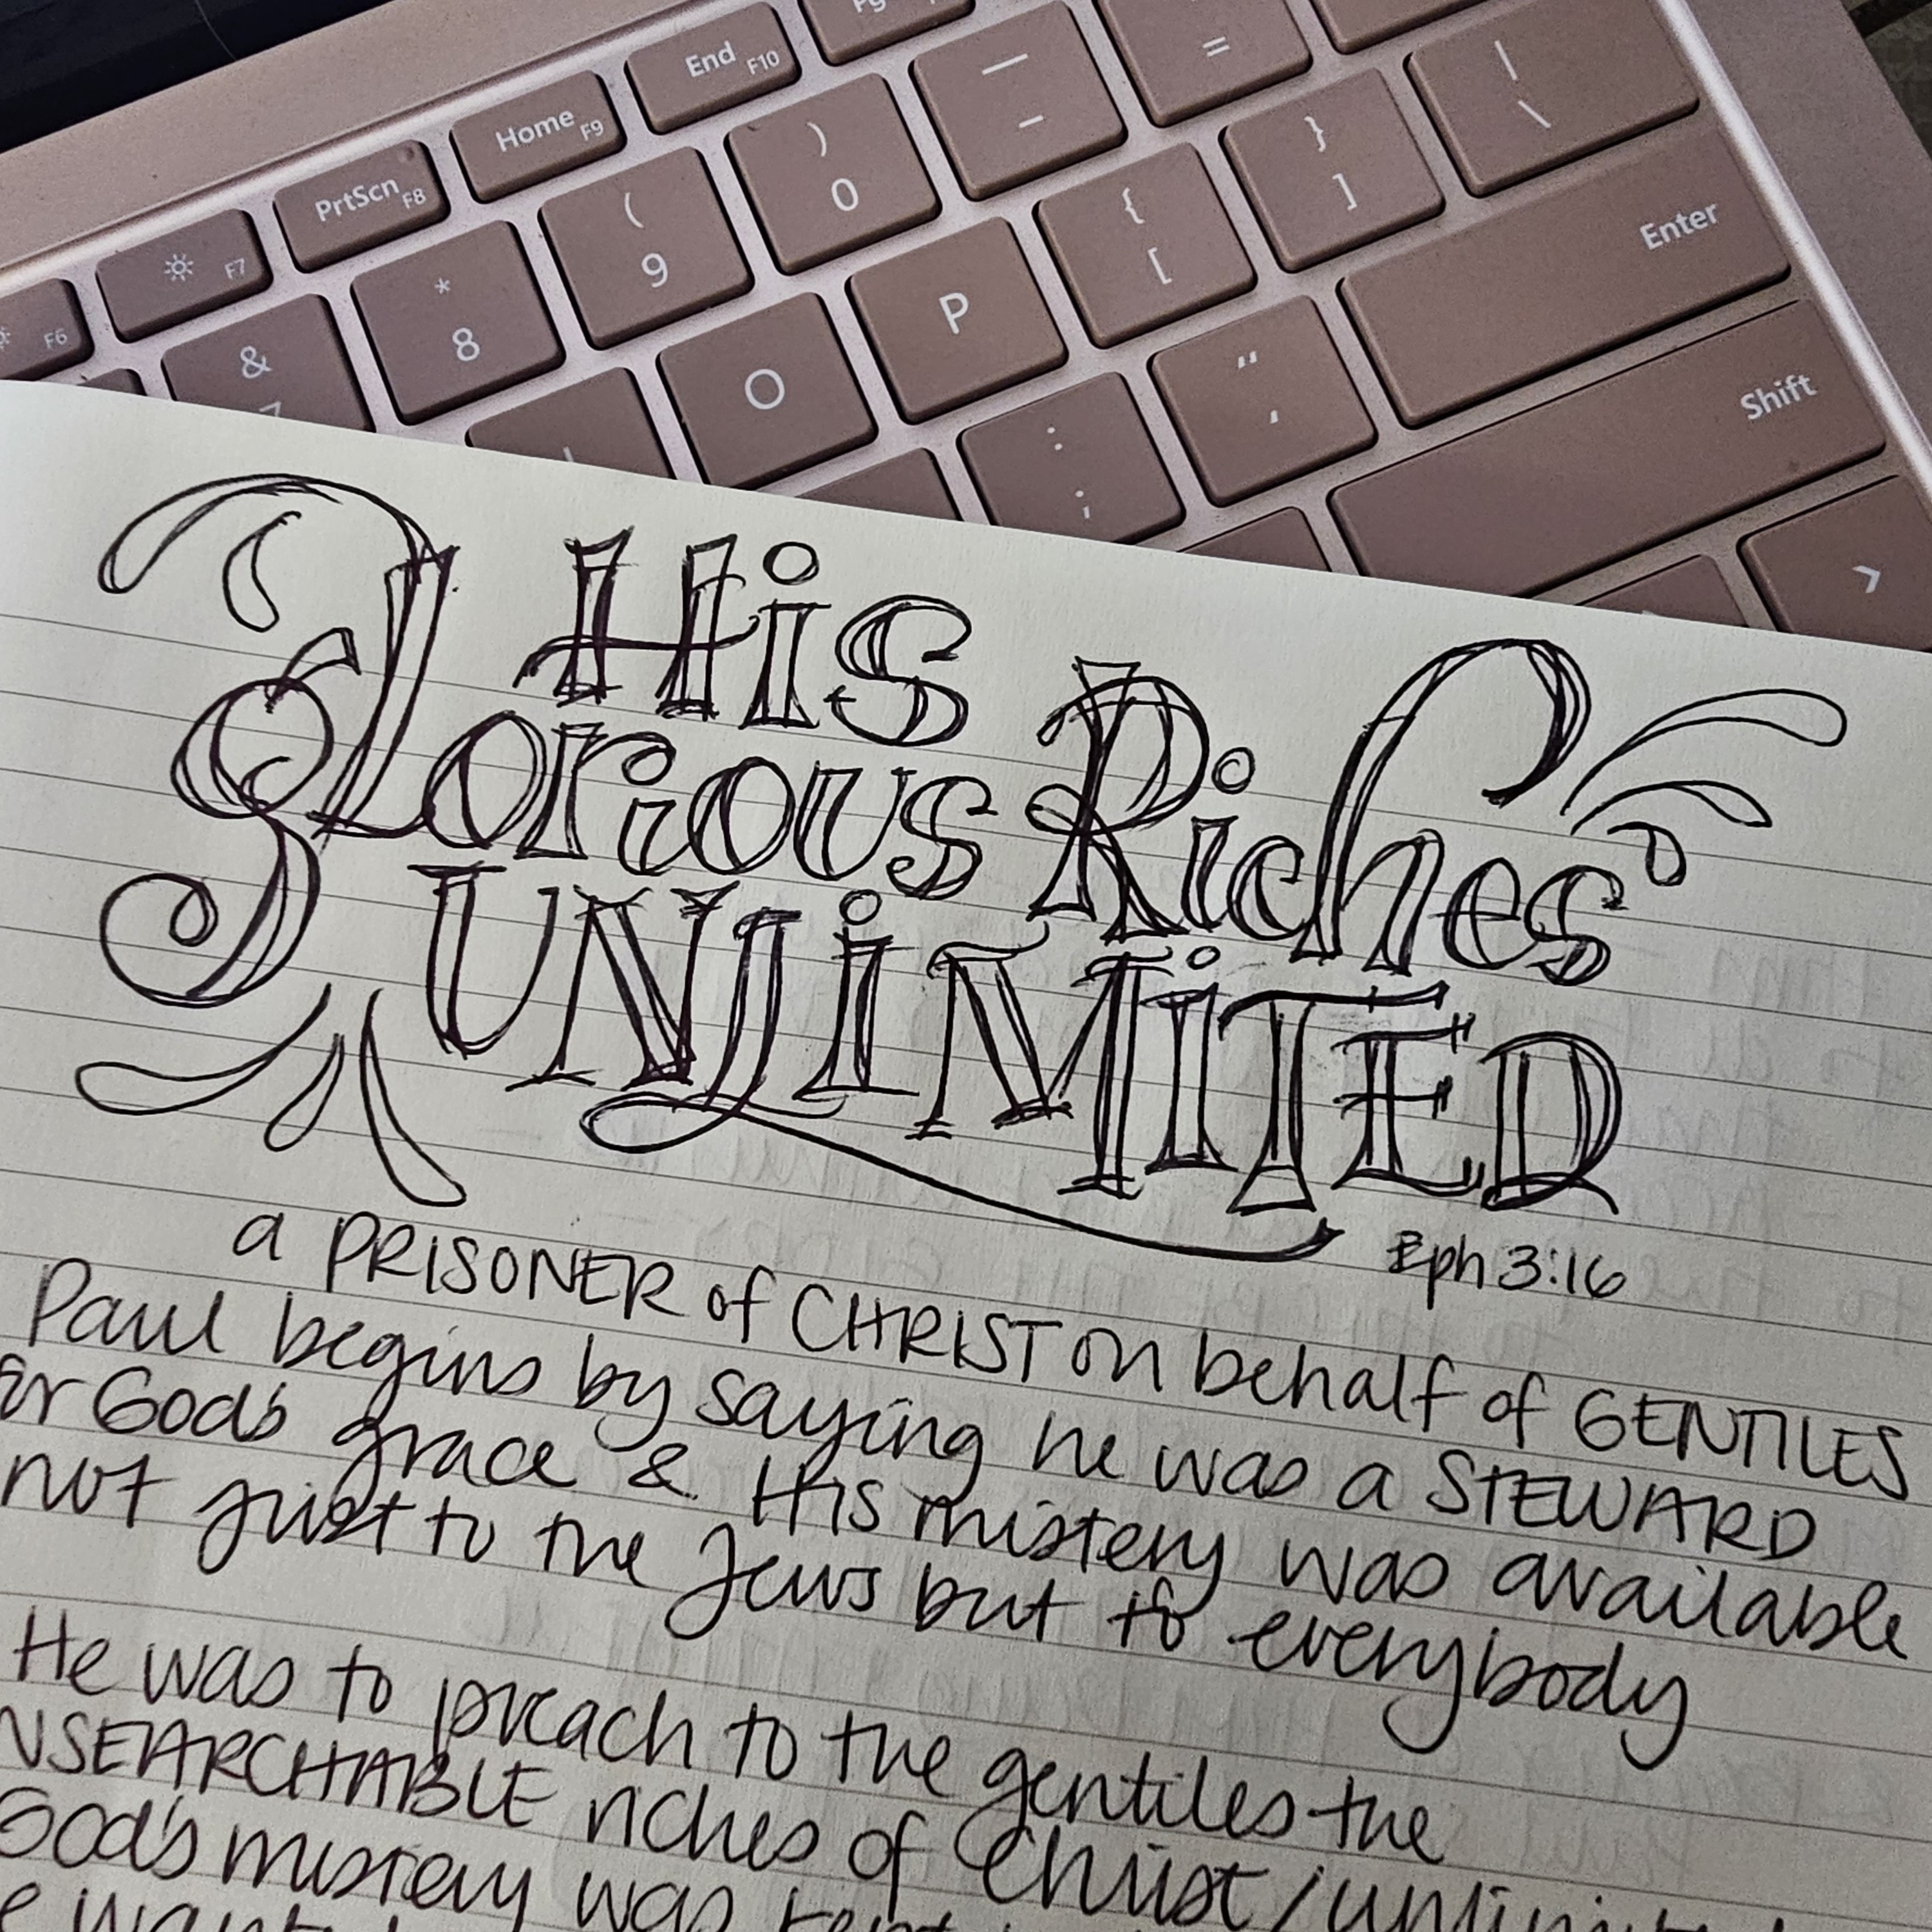 End F10
Home F9
PrtScn F8
F7
F6
= 
— -
) 0
( 9
* 8
& 7
| \
} ]
{ [
P
O
Enter
" '
: ;
Shift
His
glorious Riches
UNLiMiTED
Eph 3:16
a PRISONER of CHRIST on behalf of GENTILES
Paul begins by saying he was a STEWARD
for God's grace & His mistery was available
not just to the Jews but to everybody
He was to preach to the gentiles the
NSEARCHABLE riches of Christ/unlimit
God's mistery was kept